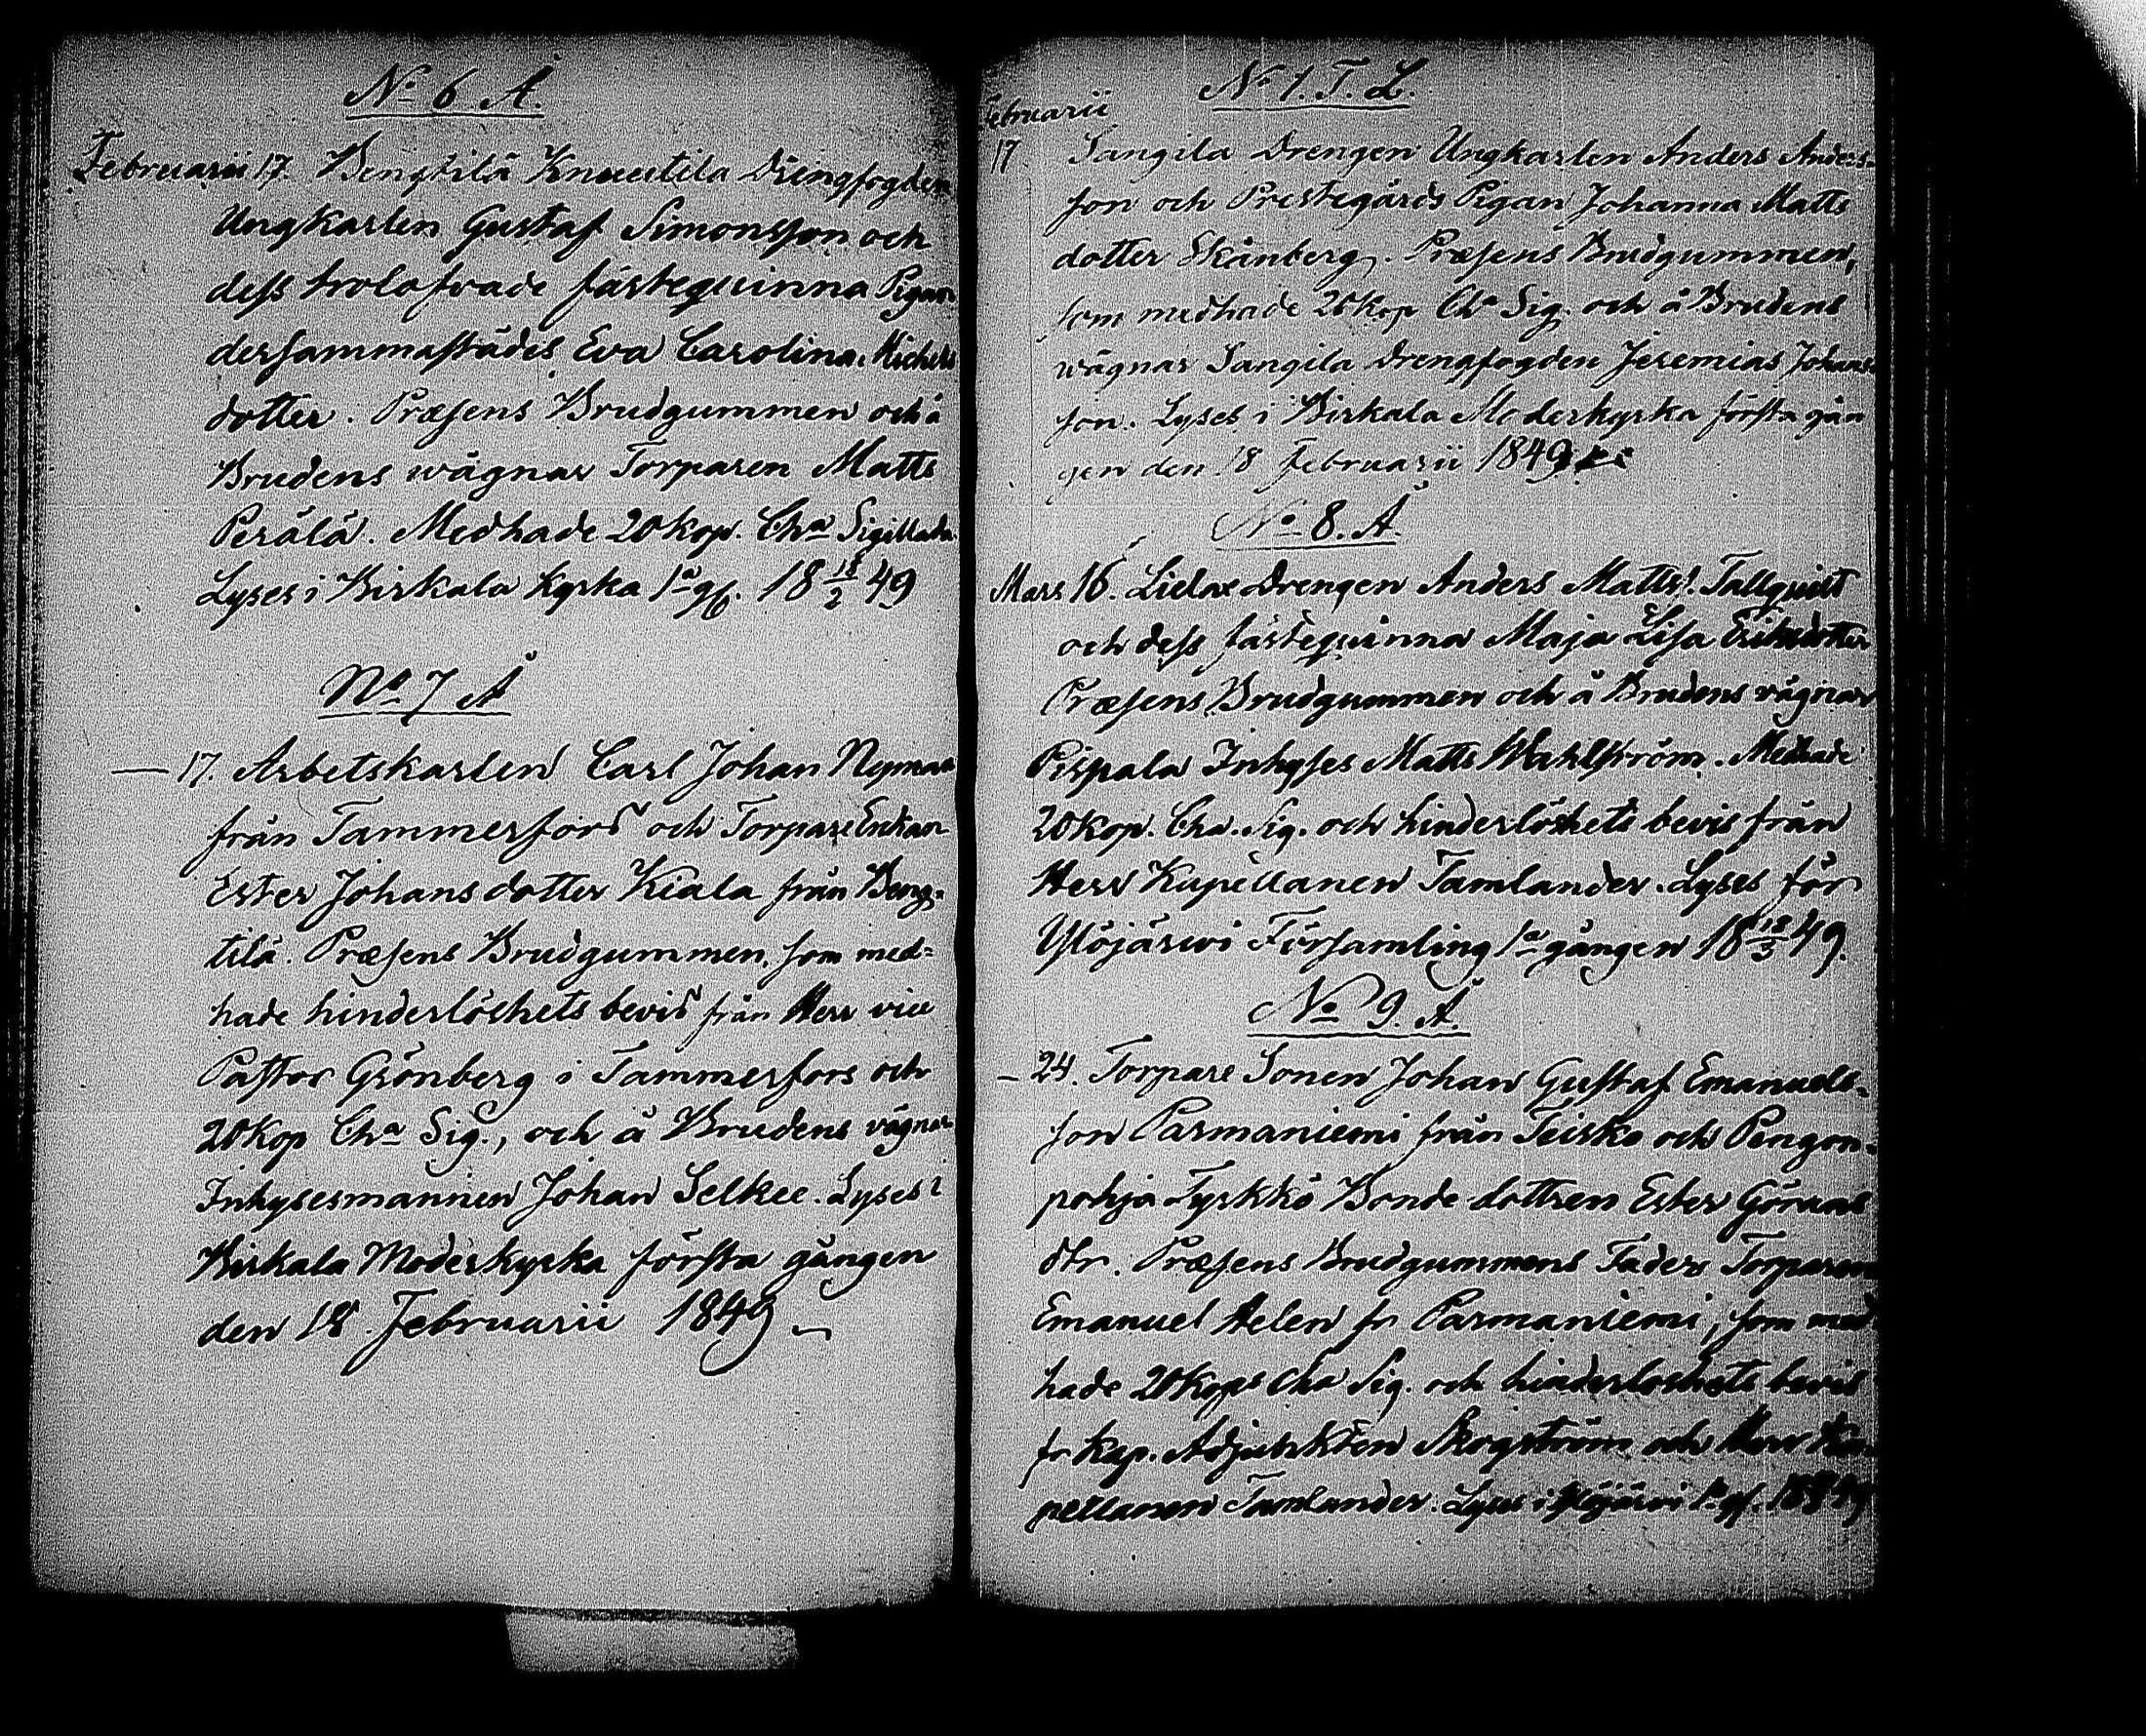 No 6 Å.
Februarii 17. Bengtilä Knuutila Drengfogden
Ungkarlen Gustaf Simonsson och
dess trolofvade fästeqvinna Pigan
dersammastädes Eva Carolina Michels
dotter. Præsens Brudgummen och å
Brudens wägnar Torparen Matts
Perälä. Medhade 20 kop. Cha Sigillata.
Lyses i Birkala Kyrka 1a gg. 18 18/2 49
No 7 Å
— 17. Arbetskarlen Carl Johan Nyman
från Tammerfors och Torpare Enkan
Ester Johansdotter Kiala från Beng-
tilä. Præsens Brudgummen, som med-
hade hinderlöshets bevis från Herr vice
Pastor Grönberg i Tammerfors och
20 Kop Cha Sig., och å Brudens vägnar
Inhysesmannen Johan Selkee. Lyses i
Birkala Moderkyrka första gången
den 18 Februarii 1849
No 1. T. L.
Februarii
17 Sangila Drengen Ungkarlen Anders Anders-
son och Prestegårds Pigan Johanna Matts
dotter Ekånberg. Præsens Brudgummen,
som medhade 20 Kop Cha Sig. och å Brudens
wägnar Sangila Drengfogden Jeremias Johans
son. Lyses i Birkala Moderkyrka första gån
gen den 18 Februarii 1849
No 8. Å.
Mars 16. Lielax Drengen Anders Matts! Tallqvist
och dess fästeqvinna Maja Lisa Eriksdotter
Præsens Brudgummen och å Brudens vägnar
Pispala Inhyses Matts Wahlström. Medhade
20 kop. Cha. Sig. och hinderlöshets bevis från
Herr Kapellanen Tamlander. Lyses för
Ylöjärwi Församling 1a gången 18 18/3 49.
No 9. Å.
— 24. Torpare Sonen Johan Gustaf Emanuels-
son Parmaniemi från Teisko och Pengon-
pohja Tyrkkö Bonde dottren Ester Görans
dtr. Præsens Brudgummens Fader Torparen
Emanuel Helen fr Parmaniemi, som med
hade 20 kops Cha Sig. och hinderloshets bevis
fr Kap. Adjunkten Skogström och Herr Ka-
pellanen Tamlander. Lyses i Ylöjärvi 1a gg.